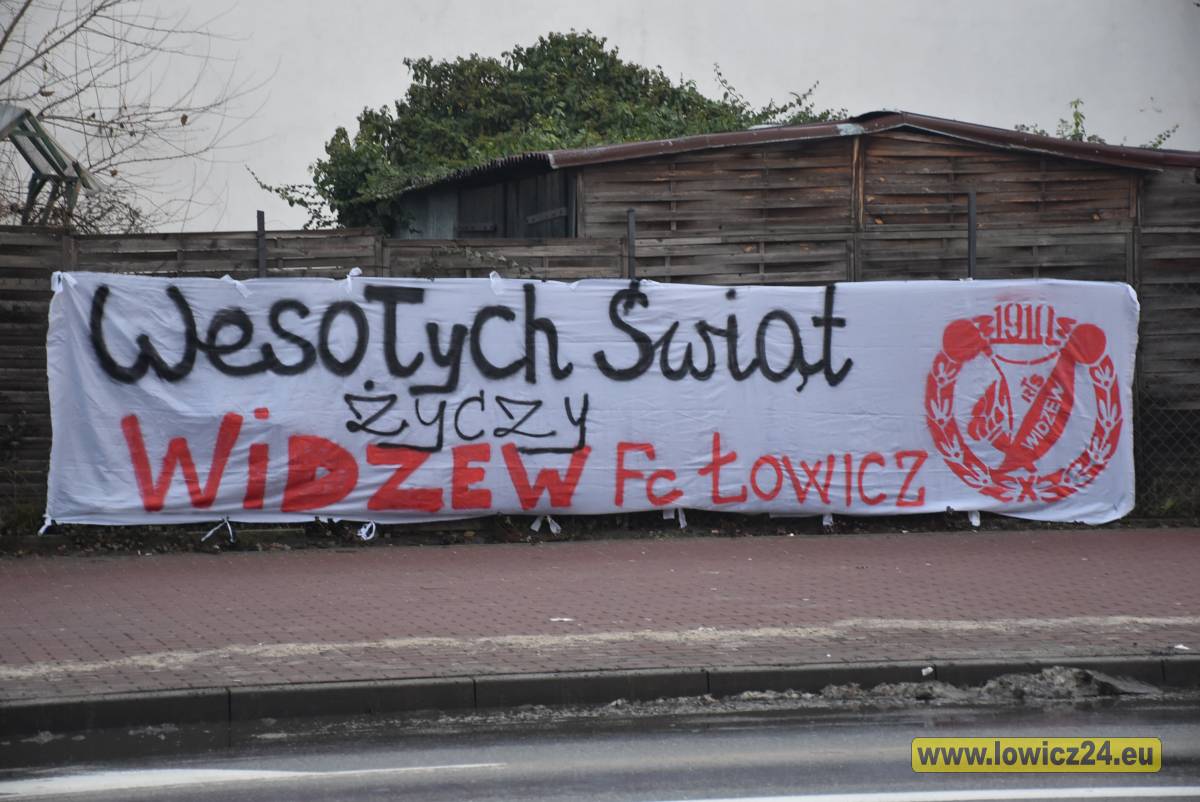 Wesołych Świąt
życzy
WiDZEW Fc ŁOWICZ
1910
RTS
WIDZEW
www.lowicz24.eu